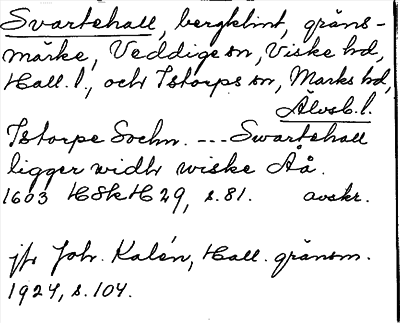 Svartehall, bergklint, gräns-
märke, Veddige sn, Viske hd,
Hall. l., och Istorps sn, Marks hd,
Älvsb. l.
Istorpe Sochn. --- Swartehall
ligger widh wiske Åå.
1603 HSkH 29, s. 81. avskr.
jfr Joh. Kalén, Hall. gränsm.
1924, s. 104.